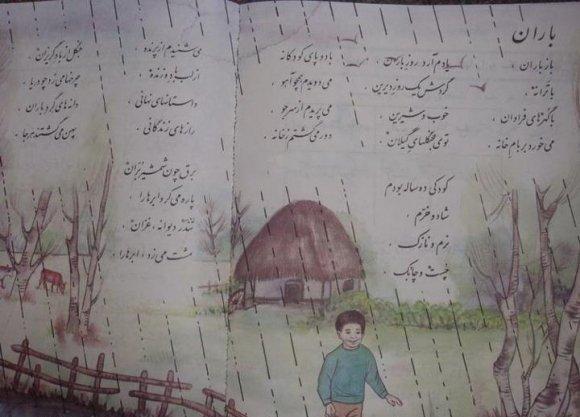 باران
باز باران ،
با ترانه
با گهرهای فراوان
می خورد بر بام خانه .
یادم آرد روز باران ،
گردش یک روز دیرین ،
خوب و شیرین
توی جنگلهای گیلان .
کودکی ده ساله بودم
شاد و خرّم ،
نرم و نازک
چست و چابک
با دو پای کودکانه
می دویدم همچو آهو
می پریدم از سر جو ،
دور می گشتم ز خانه .
می شنیدم از پرنده ،
از لب باد وزنده ،
داستانهای نهانی ،
رازهای زندگانی .
برق چون شمشیر بران
پاره می کرد ابرها را ،
تندر دیوانه ، غرّان
مشت می زد ، ابرها را .
جنگل از باد گریزان
چرخها می زد چو دریا
دانه های گرد باران
پهن می گشتند هر جا .